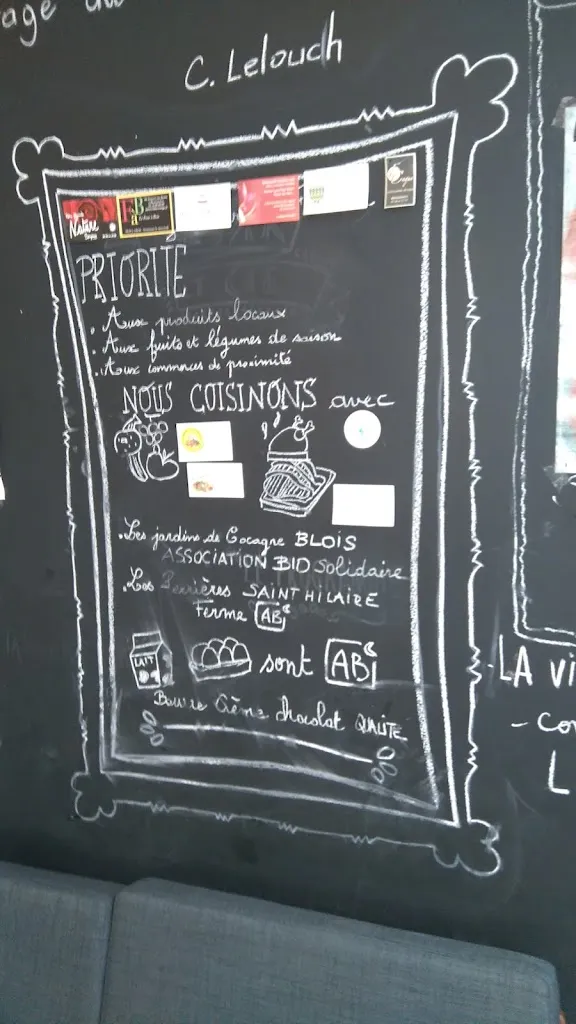 age
C. Lelouch
Nature
PRIORITE
. Aux produits locaux
. Aux fruits et légumes de saison
. Aux commerces de proximité
NOUS CUISINONS avec
. Les jardins de Cocagne BLOIS
ASSOCIATION BIO Solidaire
. Les Perrières SAINT HILAIRE
Ferme AB
LAIT sont AB
Beurre Crème chocolat QUALITE
LA vi
- Co
L